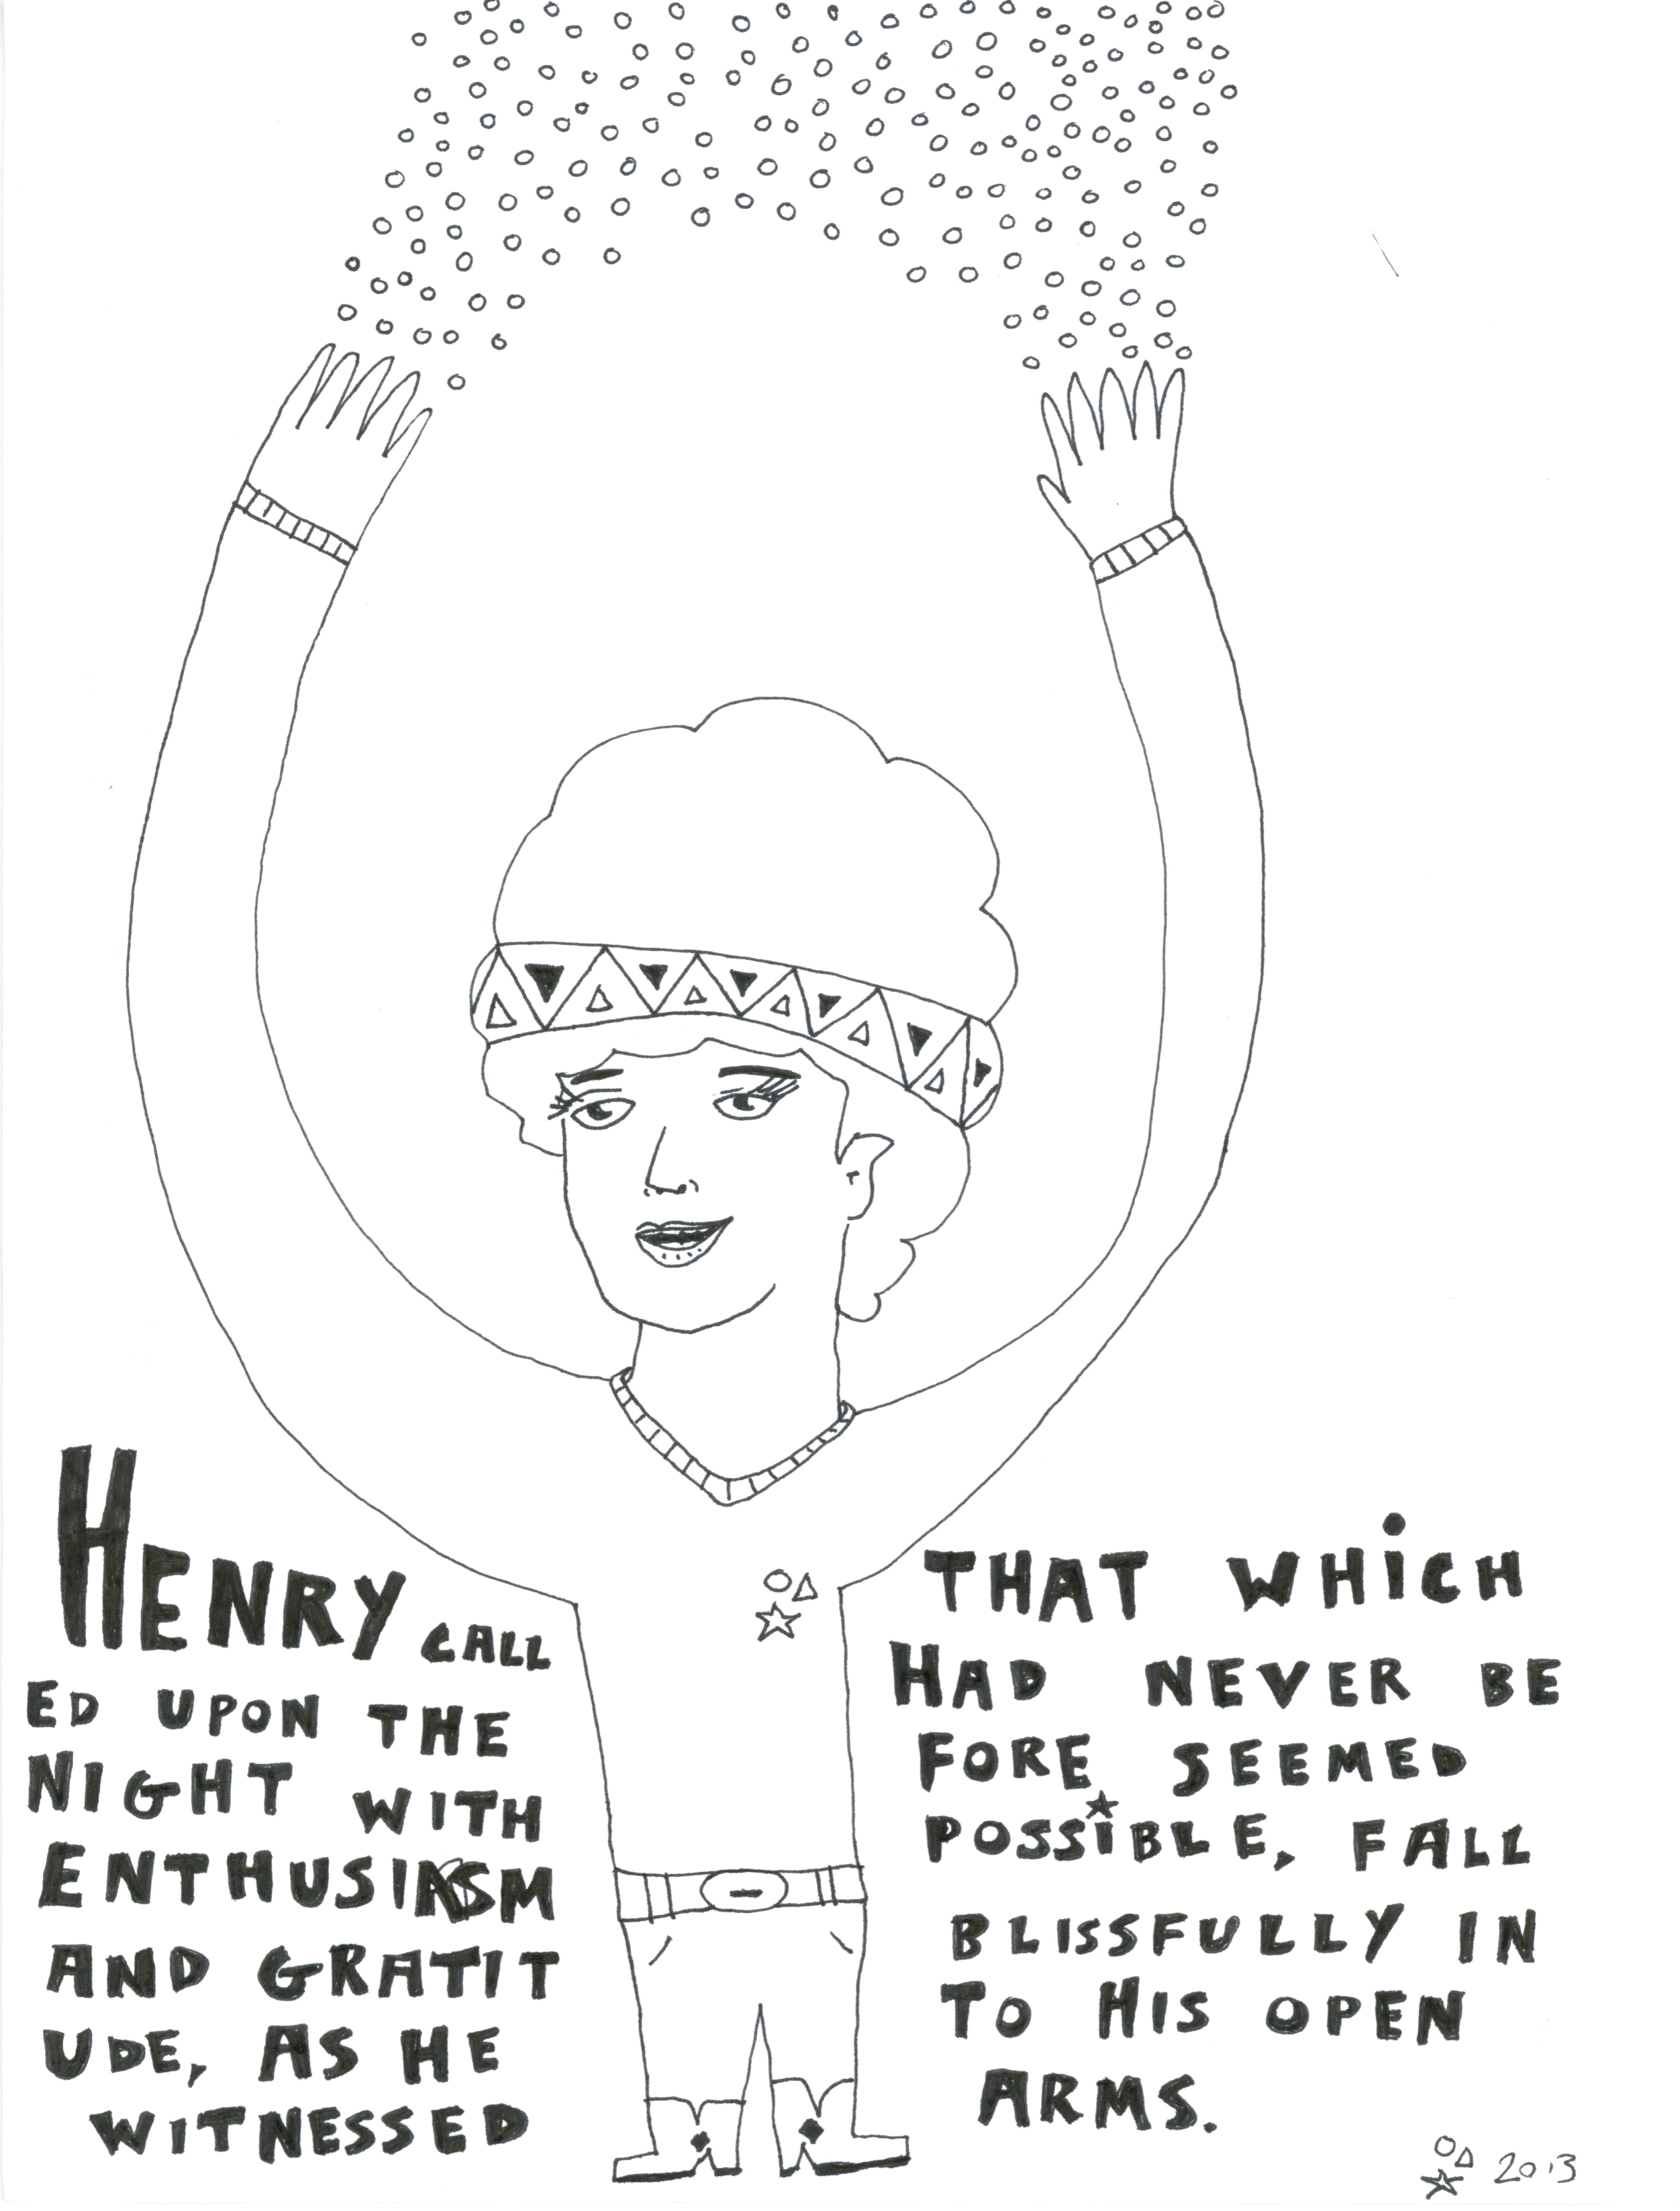 HENRY CALL
ED UPON THE
NIGHT WITH
ENTHUSIASM
AND GRATIT
UDE, AS HE
WITNESSED
THAT WHiCH
HAD NEVER BE
FORE SEEMED
POSSiBLE, FALL
BLISSFULLY IN
TO HIS OPEN
ARMS.
2013